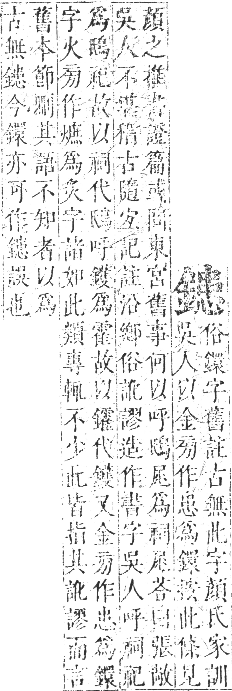 俗鐶字舊註古無此字顏氏家訓
吳人以金旁作患為鐶按此條見
顏之推書證篇或問東宮舊事何以呼鴟尾為祠尾荅曰張敞
吳人不甚稽古隨宜記註沿鄉俗訛謬造作書字吳人呼祠祀
為鴟祀故以祠代鴟呼鑊為霍故以代鑊又金旁作患為鐶
字火旁作熫為炙字諸如此類專輒不少此皆指其訛謬而言
舊本節刪其語不知者以為
古無今鐶亦可作誤也